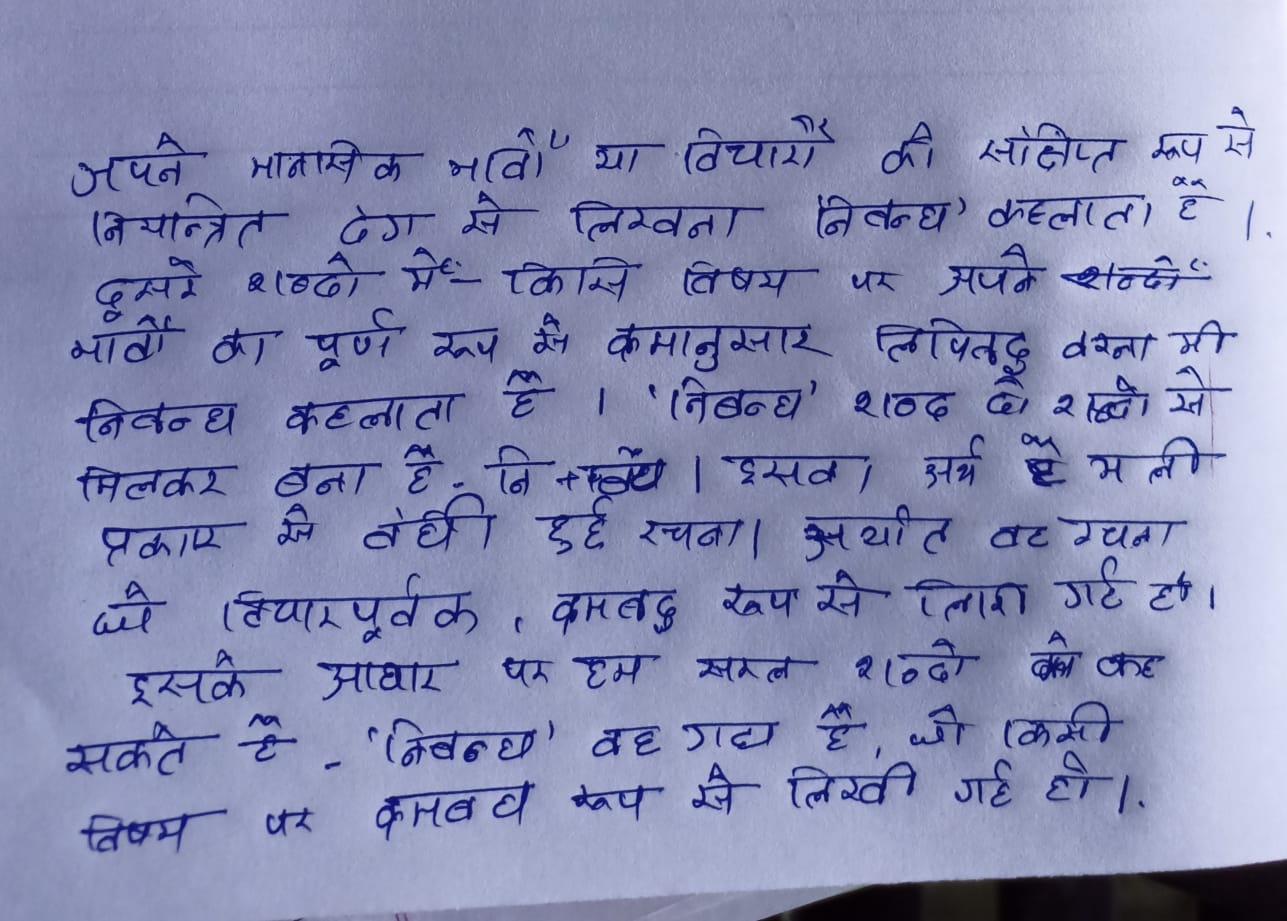 अपने मानसिक भावों या विचारों को संक्षिप्त रूप से
नियन्त्रित ढंग से लिखना 'निबन्ध' कहलाता है ।
दूसरे शब्दो में - किसि विषय पर अपने शब्दों
भावों का पूर्ण रूप से क्रमानुसार लिपिबद्ध करना भी
निबन्ध कहलाता है । 'निबन्ध' शब्द दो शब्दो से
मिलकर बना है - नि + बंध । इसका अर्थ है भली
प्रकार से बंधी हुई रचना। अर्थात वह रचना
जो विचारपूर्वक, क्रमबद्ध रूप से लिखी गई हो।
इसके आधार पर हम सरल शब्दो कह
सकते है - 'निबन्ध' वह गद्य है, जो किसी
विषय पर क्रमबध रूप से लिखी गई हो ।